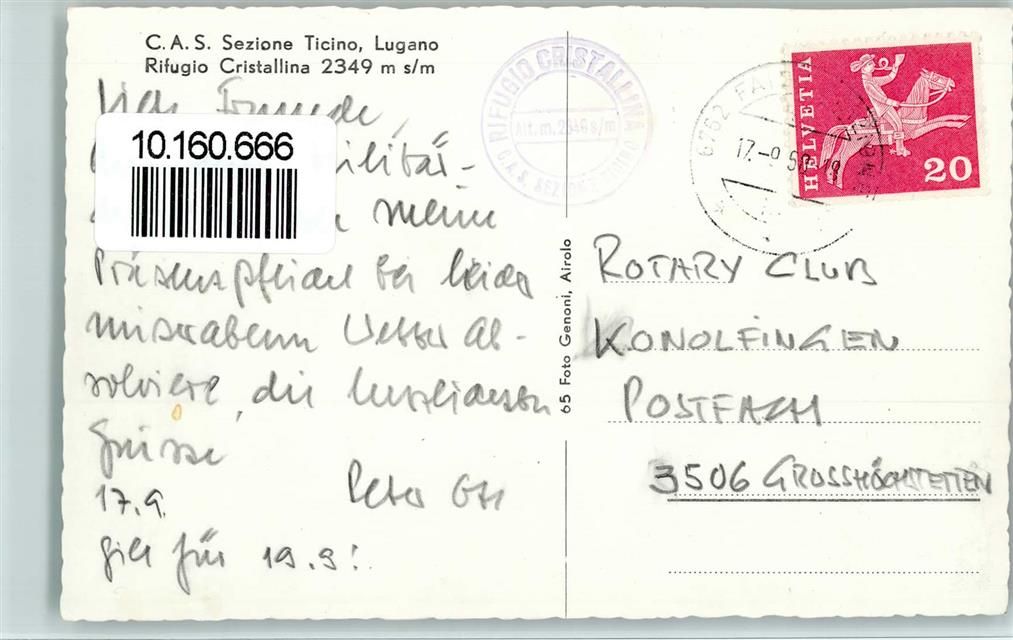 C.A.S. Sezione Ticino, Lugano
Rifugio Cristallina 2349 m s/m
Freunde,
10.160.666
militär-
meine
Präsenspflicht bei leider
miserablem Wetter ab-
solviere, die herzlichsten
Grüsse
17.9. Peter Ott
gilt für 19.9!
RIFUGIO CRISTALLINA
Alt. m. 2349 s/m
C.A.S. SEZIONE TICINO
65 Foto Genoni, Airolo
HELVETIA
20
6762
17.-9
ROTARY CLUB
KONOLFINGEN
POSTFACH
3506 GROSSHÖCHSTETTEN